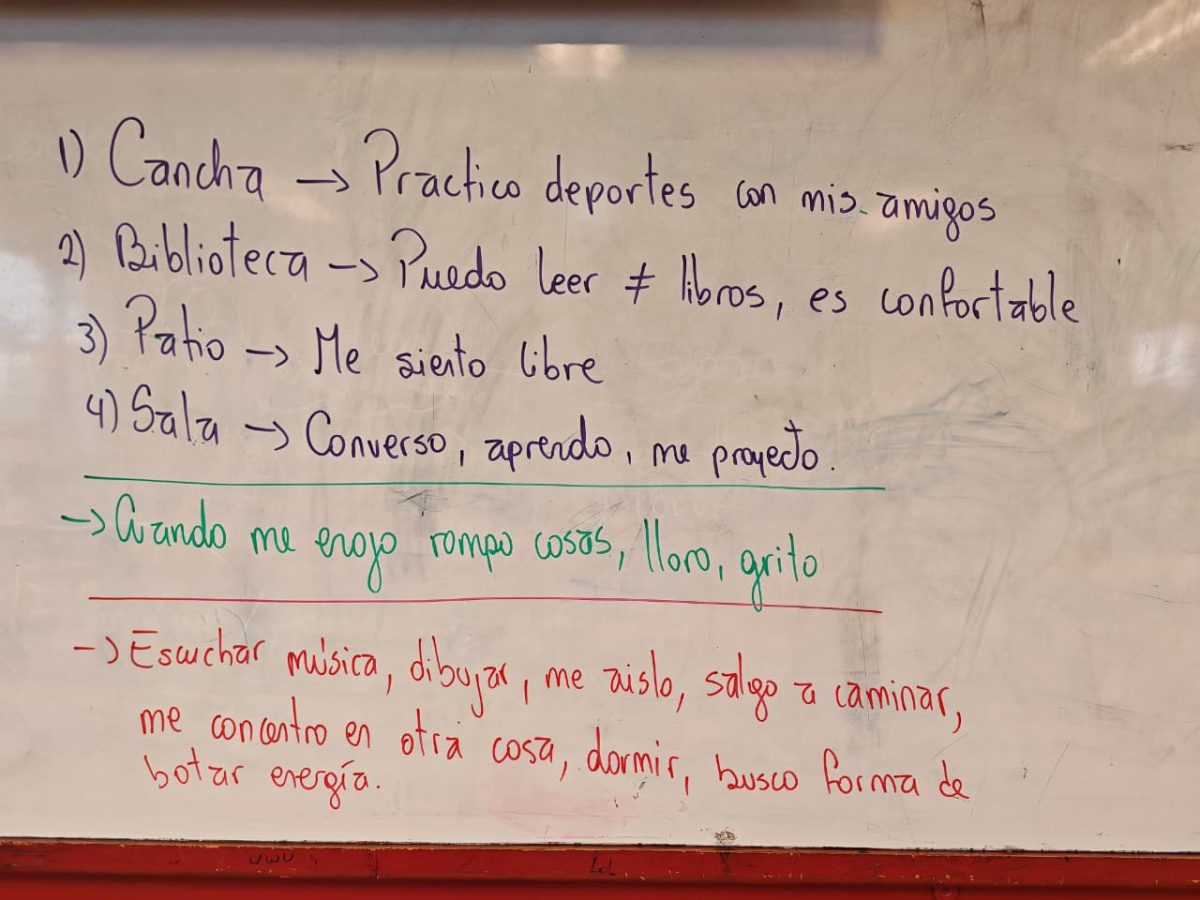 1) Cancha → Practico deportes con mis amigos
2) Biblioteca → Puedo leer ≠ libros, es confortable
3) Patio → Me siento libre
4) Sala → Converso, aprendo, me proyecto.
→ Cuando me enojo rompo cosas, lloro, grito
→ Escuchar música, dibujar, me aislo, salgo a caminar,
me concentro en otra cosa, dormir, busco forma de
botar energía.
UWU